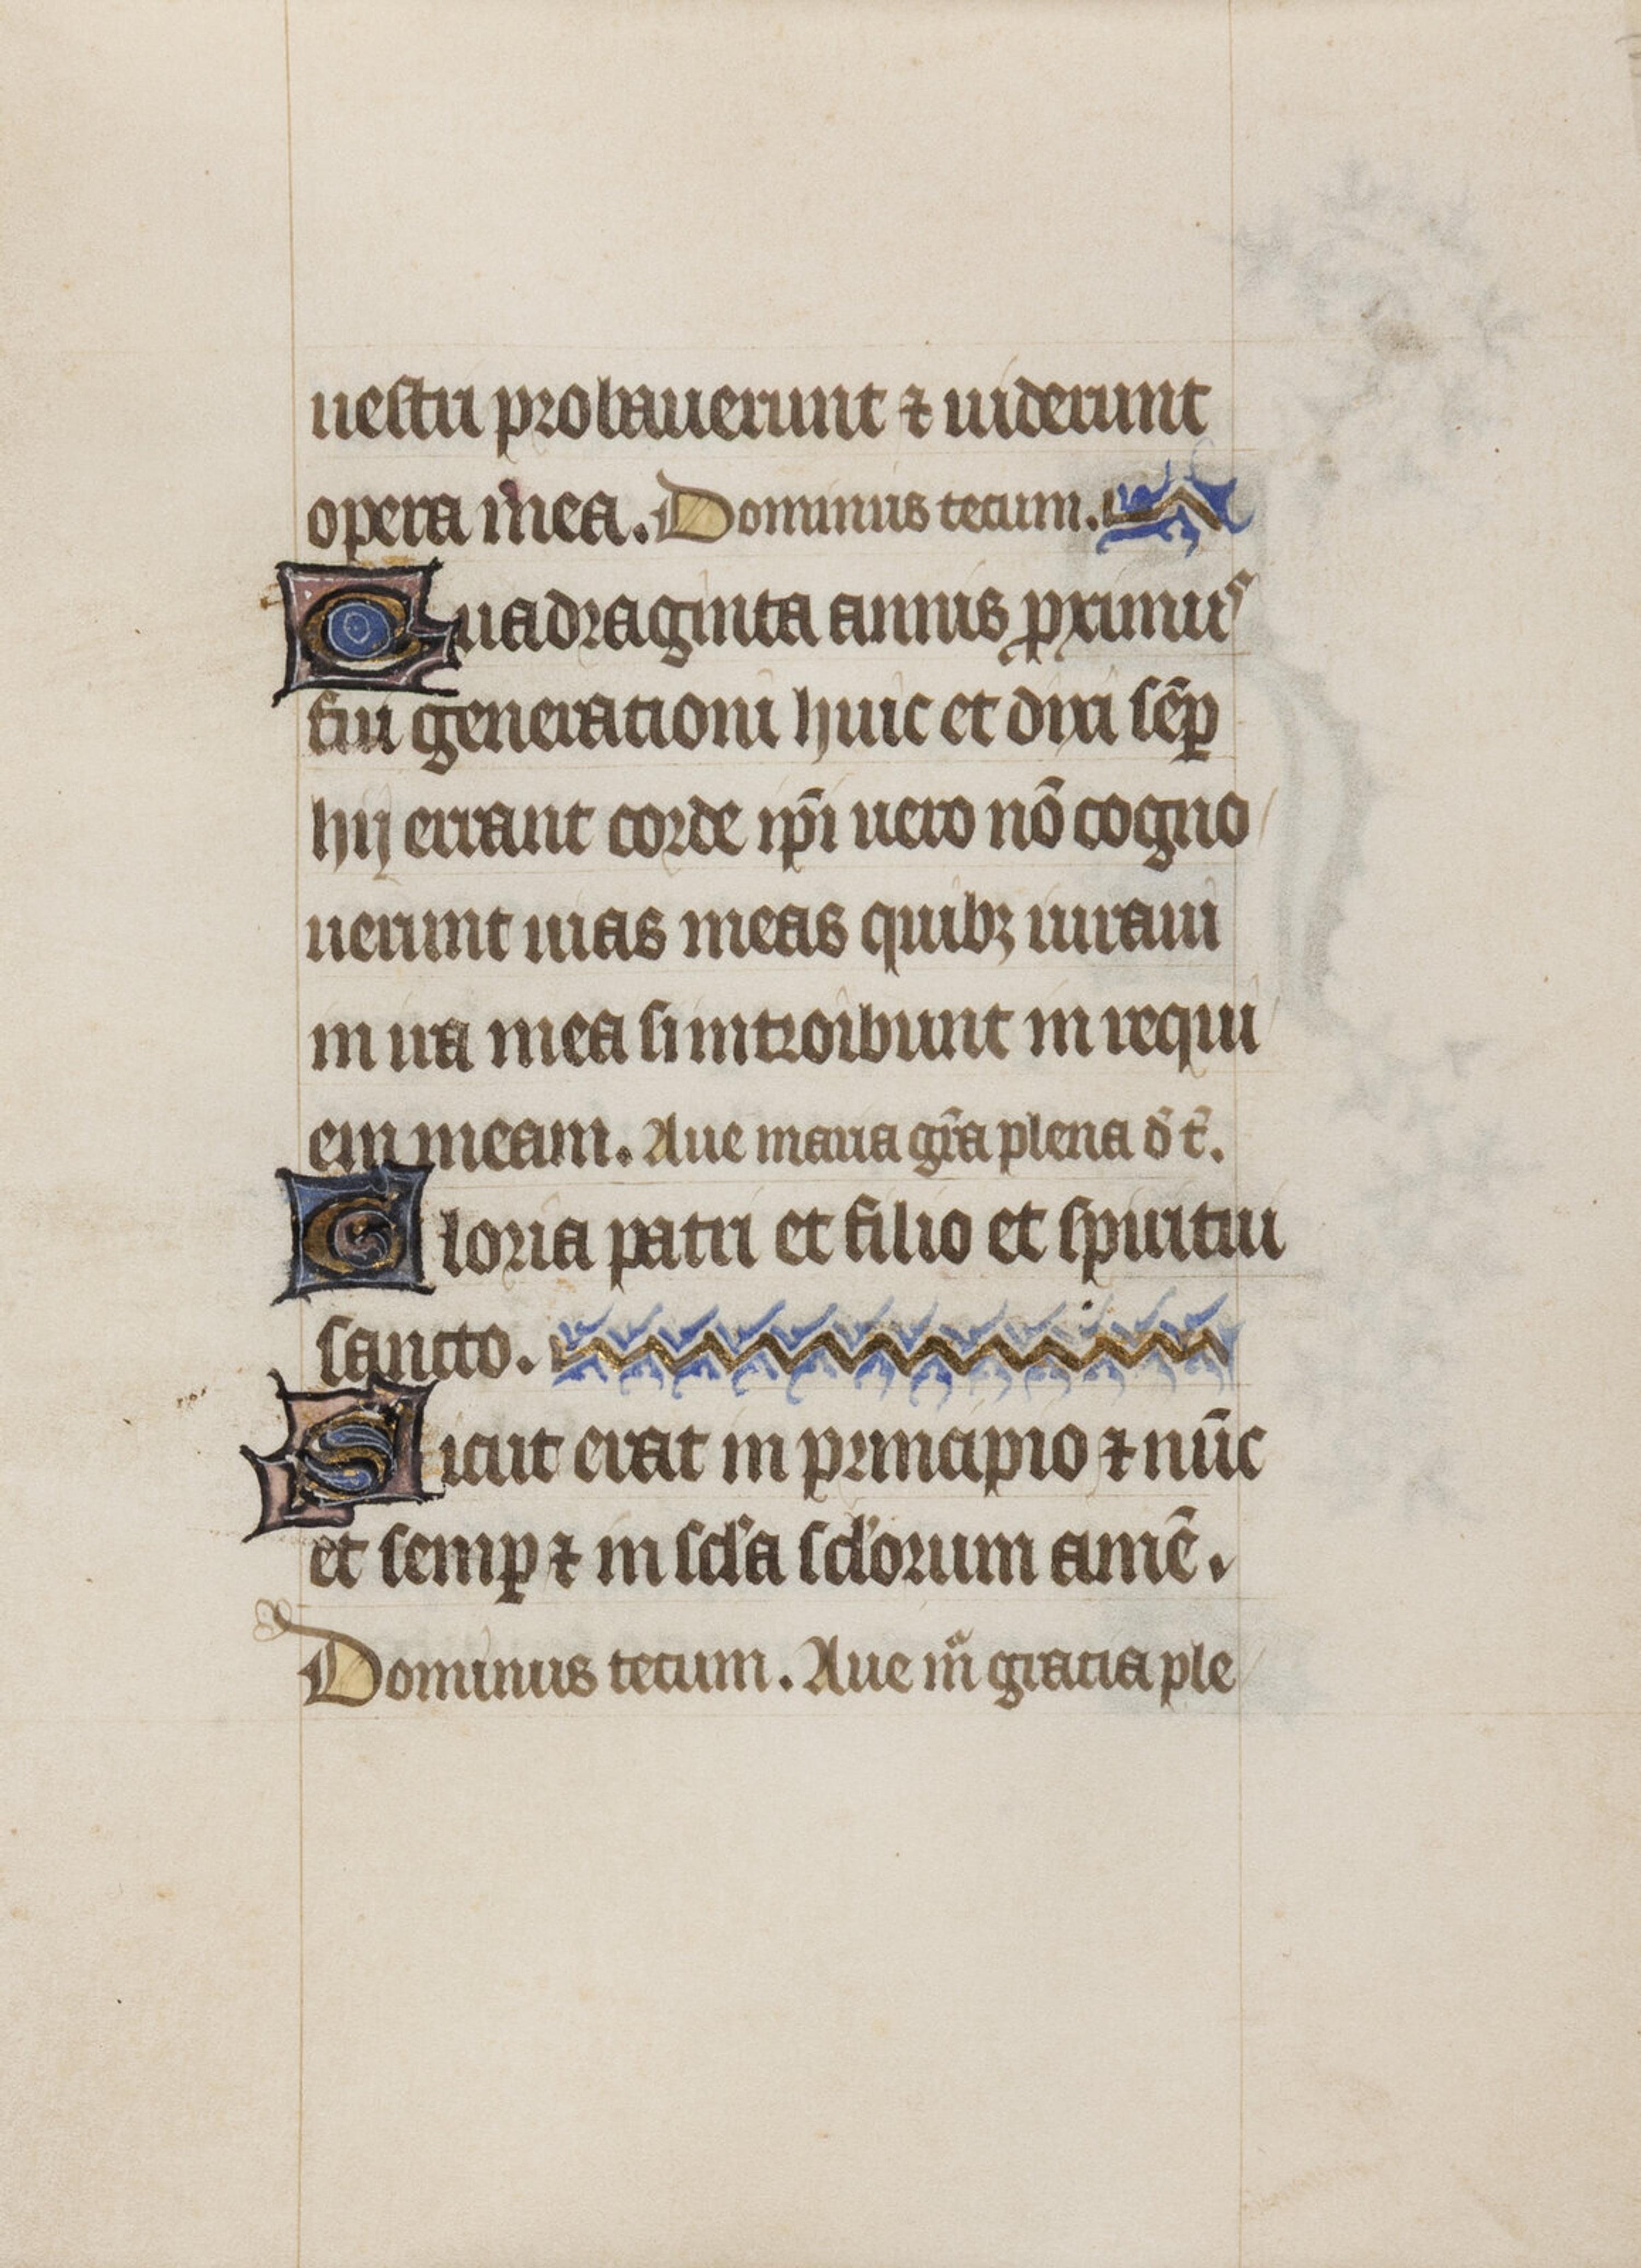 uestri probauerunt ⁊ uiderunt
opera mea. Dominus tecum.
Quadraginta annis ꝓximus
fui generationi huic et dixi sēꝑ
hij errant corde ip̄i uero nō cogno
uerunt uias meas quibꝫ iuraui
in ira mea si introibunt in requi
em meam. Aue maria gr̄a plena d̄ t̄.
Gloria patri et filio et spiritui
sancto.
Sicut erat in principio ⁊ nūc
et semꝑ ⁊ in scl'a scl'orum amē.
Dominus tecum. Aue mͣ gracia ple